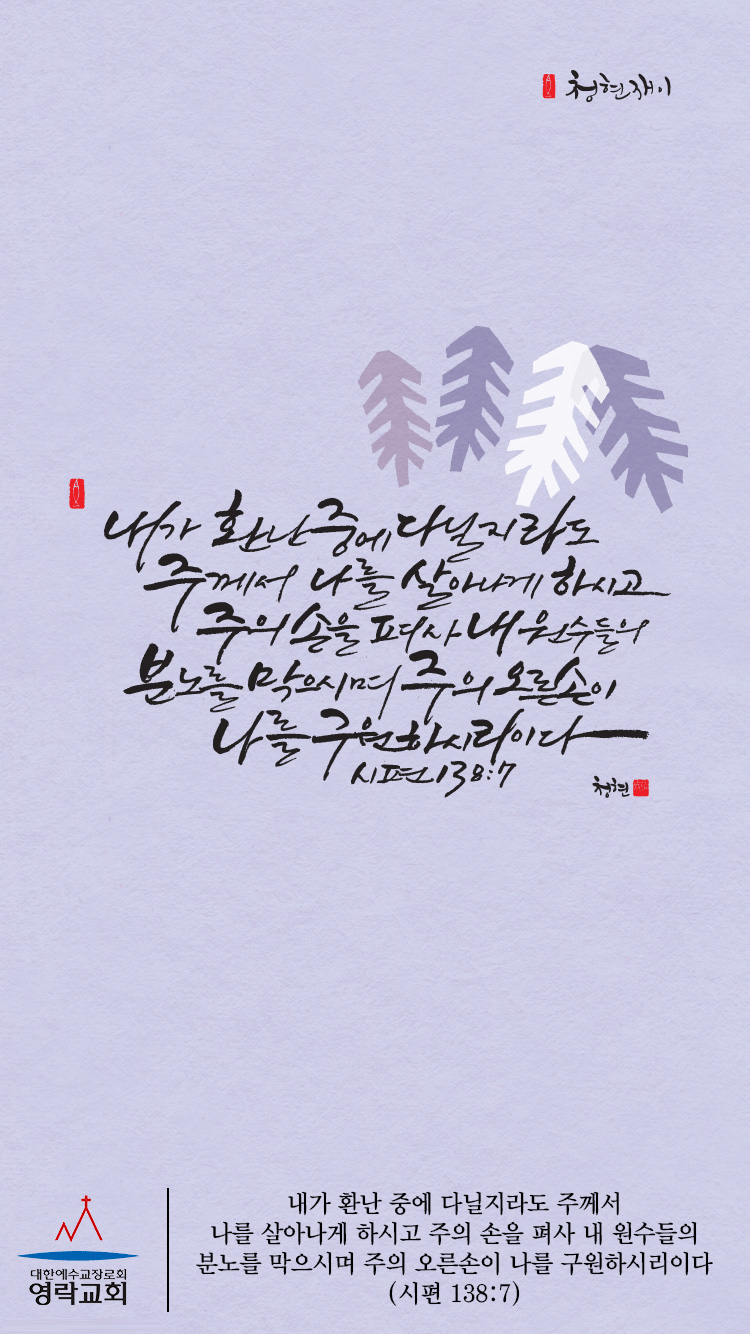 청현재이
내가 환난 중에 다닐지라도
주께서 나를 살아나게 하시고
주의 손을 펴사 내 원수들의
분노를 막으시며 주의 오른손이
나를 구원하시리이다
시편 138:7
청현
내가 환난 중에 다닐지라도 주께서
나를 살아나게 하시고 주의 손을 펴사 내 원수들의
분노를 막으시며 주의 오른손이 나를 구원하시리이다
(시편 138:7)
대한예수교장로회
영락교회